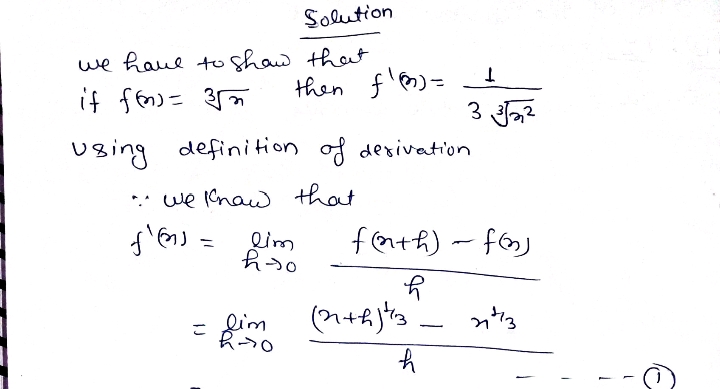 Solution
we have to show that
if f(x) = ∛x then f'(x) = 1 / (3 ∛x²)
using definition of derivation
∵ we know that
f'(x) = lim h→0 (f(x+h) - f(x)) / h
= lim h→0 ((x+h)^1/3 - x^1/3) / h - - - - ①